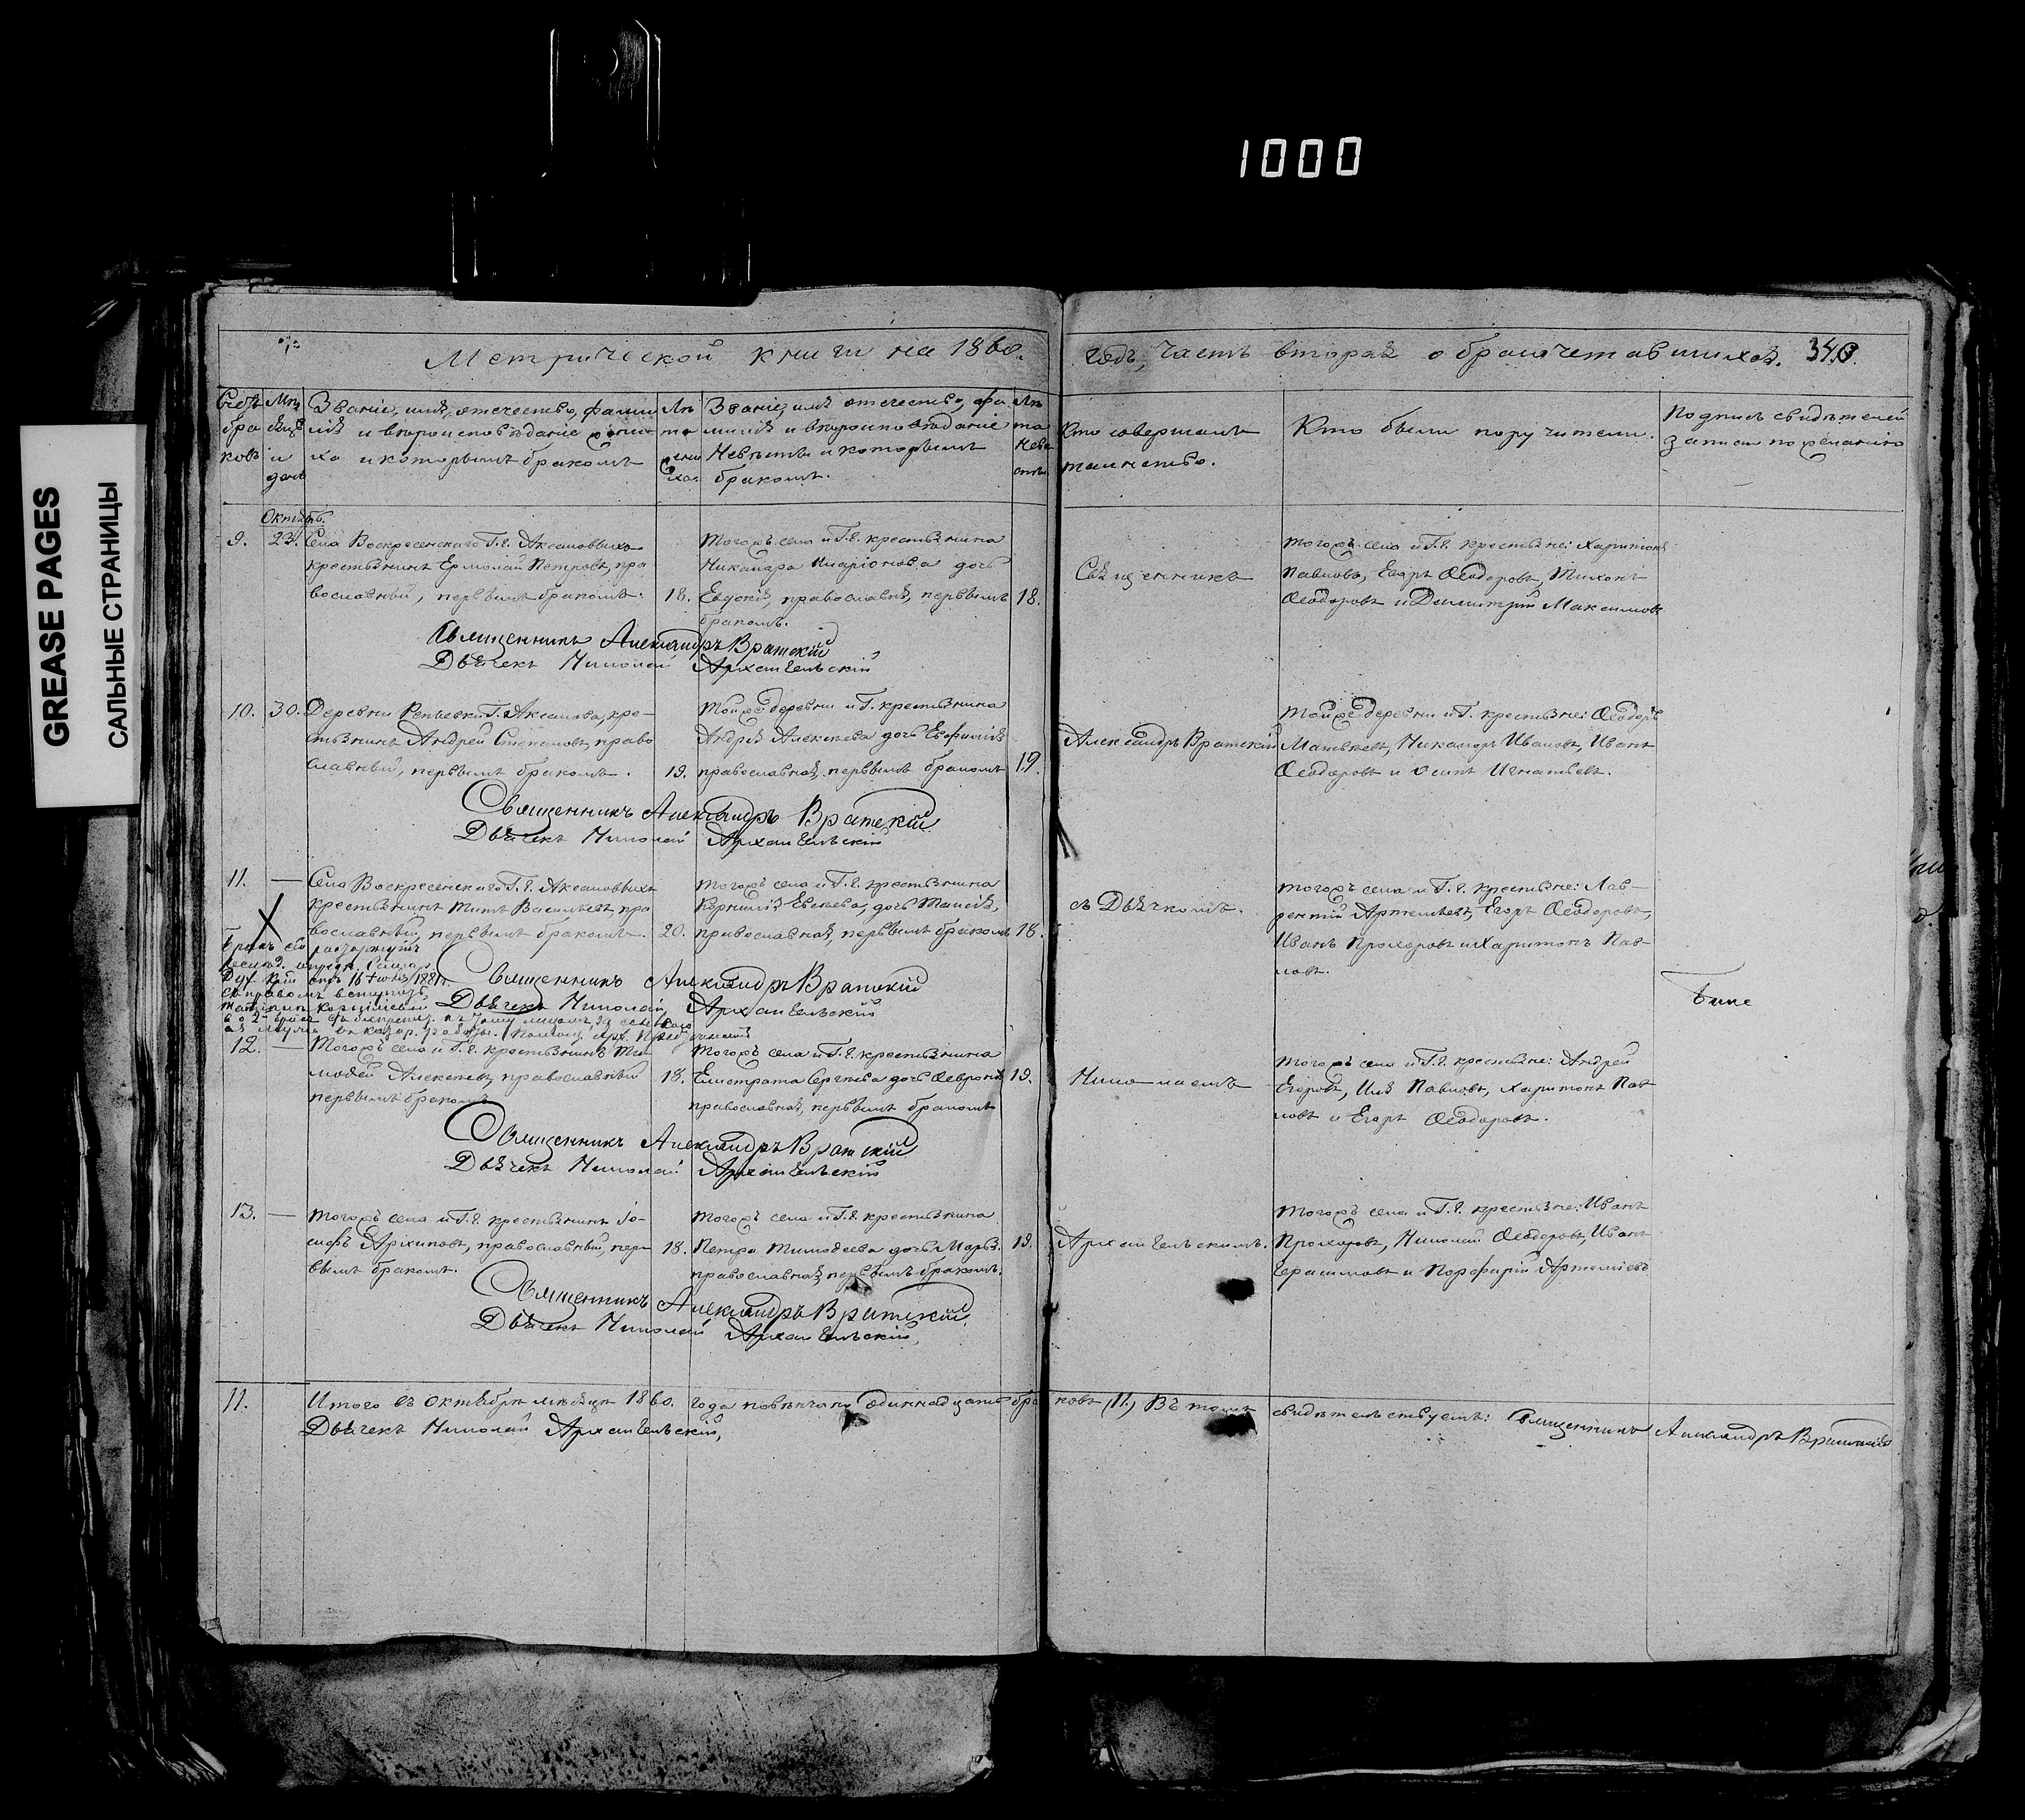 1000
GREASE PAGES
САЛЬНЫЕ СТРАНИЦЫ
Метрической книги на 1860. годъ, часть вторая о бракочетавшихся. 340.
Счетъ браковъ
Мца и дни
Званіе, имя, отечество, фамилія и вѣроисповѣданіе жениха и которымъ бракомъ
Лѣта жениха.
Званіе, имя отечество, фамилія и вѣроисповѣданіе Невѣсты и которымъ бракомъ.
Лѣта Невѣсты.
Кто совершалъ таинство.
Кто были поручители.
Подпись свидѣтелей записи по желанію
Октябрь.
9. 23. Села Воскресенскаго Г.г. Аксаковыхъ
крестьянинъ Ермолай Петровъ, пра
вославный, первымъ бракомъ. 18.
Тогожъ села и Г.г. крестьянина
Никандра Иларіонова дочь
Евдокія, православная, первымъ 18.
бракомъ.
Священникъ
Тогожъ села и Г.г. крестьяне: Харитонъ
Павловъ, Егоръ Ѳеодоровъ, Тихонъ
Ѳеодоровъ и Димитрій Максимовъ
Священникъ Александръ Вратскій
Дьячекъ Николай Архангельскій
10. 30. Деревни Репьевки Г. Аксакова, кре-
стьянинъ Андрей Степановъ, право
славный, первымъ бракомъ. 19.
Тойже деревни и Г. крестьянина
Андрея Алексѣева дочь Евфимія
православная, первымъ бракомъ 19.
Александръ Вратскій
Тойже деревни и Г. крестьяне: Ѳеодоръ
Матвѣевъ, Никаноръ Ивановъ, Иванъ
Ѳеодоровъ и Осипъ Игнатьевъ.
Священникъ Александръ Вратскій
Дьячекъ Николай Архангельскій
11. — Села Воскресенскаго Г.г. Аксаковыхъ
крестьянинъ Титъ Васильевъ, пра
вославный, первымъ бракомъ. 20.
Тогожъ села и Г.г. крестьянина
Корнилія Евсѣева, дочь Таисія,
православная, первымъ бракомъ 18.
съ Дьячкомъ.
Тогожъ села и Г.г. крестьяне: Лав-
рентій Артемьевъ, Егоръ Ѳеодоровъ,
Иванъ Прохоровъ и Харитонъ Пав-
ловъ.
Бракъ сей расторгнутъ
16 1881
Священникъ Александръ Вратскій
Дьячекъ Николай Архангельскій
12. — Тогожъ села и Г.г. крестьянинъ Ти-
моѳей Алексѣевъ, православный 18.
первымъ бракомъ
Тогожъ села и Г.г. крестьянина
Елистрата Сергѣева дочь Ѳевронія 19.
православная, первымъ бракомъ
Николаемъ
Тогожъ села и Г.г. крестьяне: Андрей
Егоровъ, Илья Павловъ, Харитонъ Пав
ловъ и Егоръ Ѳеодоровъ.
Священникъ Александръ Вратскій
Дьячекъ Николай Архангельскій
13. — Тогожъ села и Г.г. крестьянинъ Іо-
сифъ Архиповъ, православный, пер 18.
вымъ бракомъ.
Тогожъ села и Г.г. крестьянина
Петра Тимоѳеева дочь Марья. 19.
православная, первымъ бракомъ.
Архангельскимъ.
Тогожъ села и Г.г. крестьяне: Иванъ
Прохоровъ, Николай Ѳеодоровъ, Иванъ
Герасимовъ и Порфирій Артемьевъ
Священникъ Александръ Вратскій
Дьячекъ Николай Архангельскій
11. Итого въ Октябрѣ мѣсяцѣ 1860. года повѣнчано Одиннадцать браковъ (11.) Въ томъ свидѣтельствуемъ: Священникъ Александръ Вратскій
Дьячекъ Николай Архангельскій,